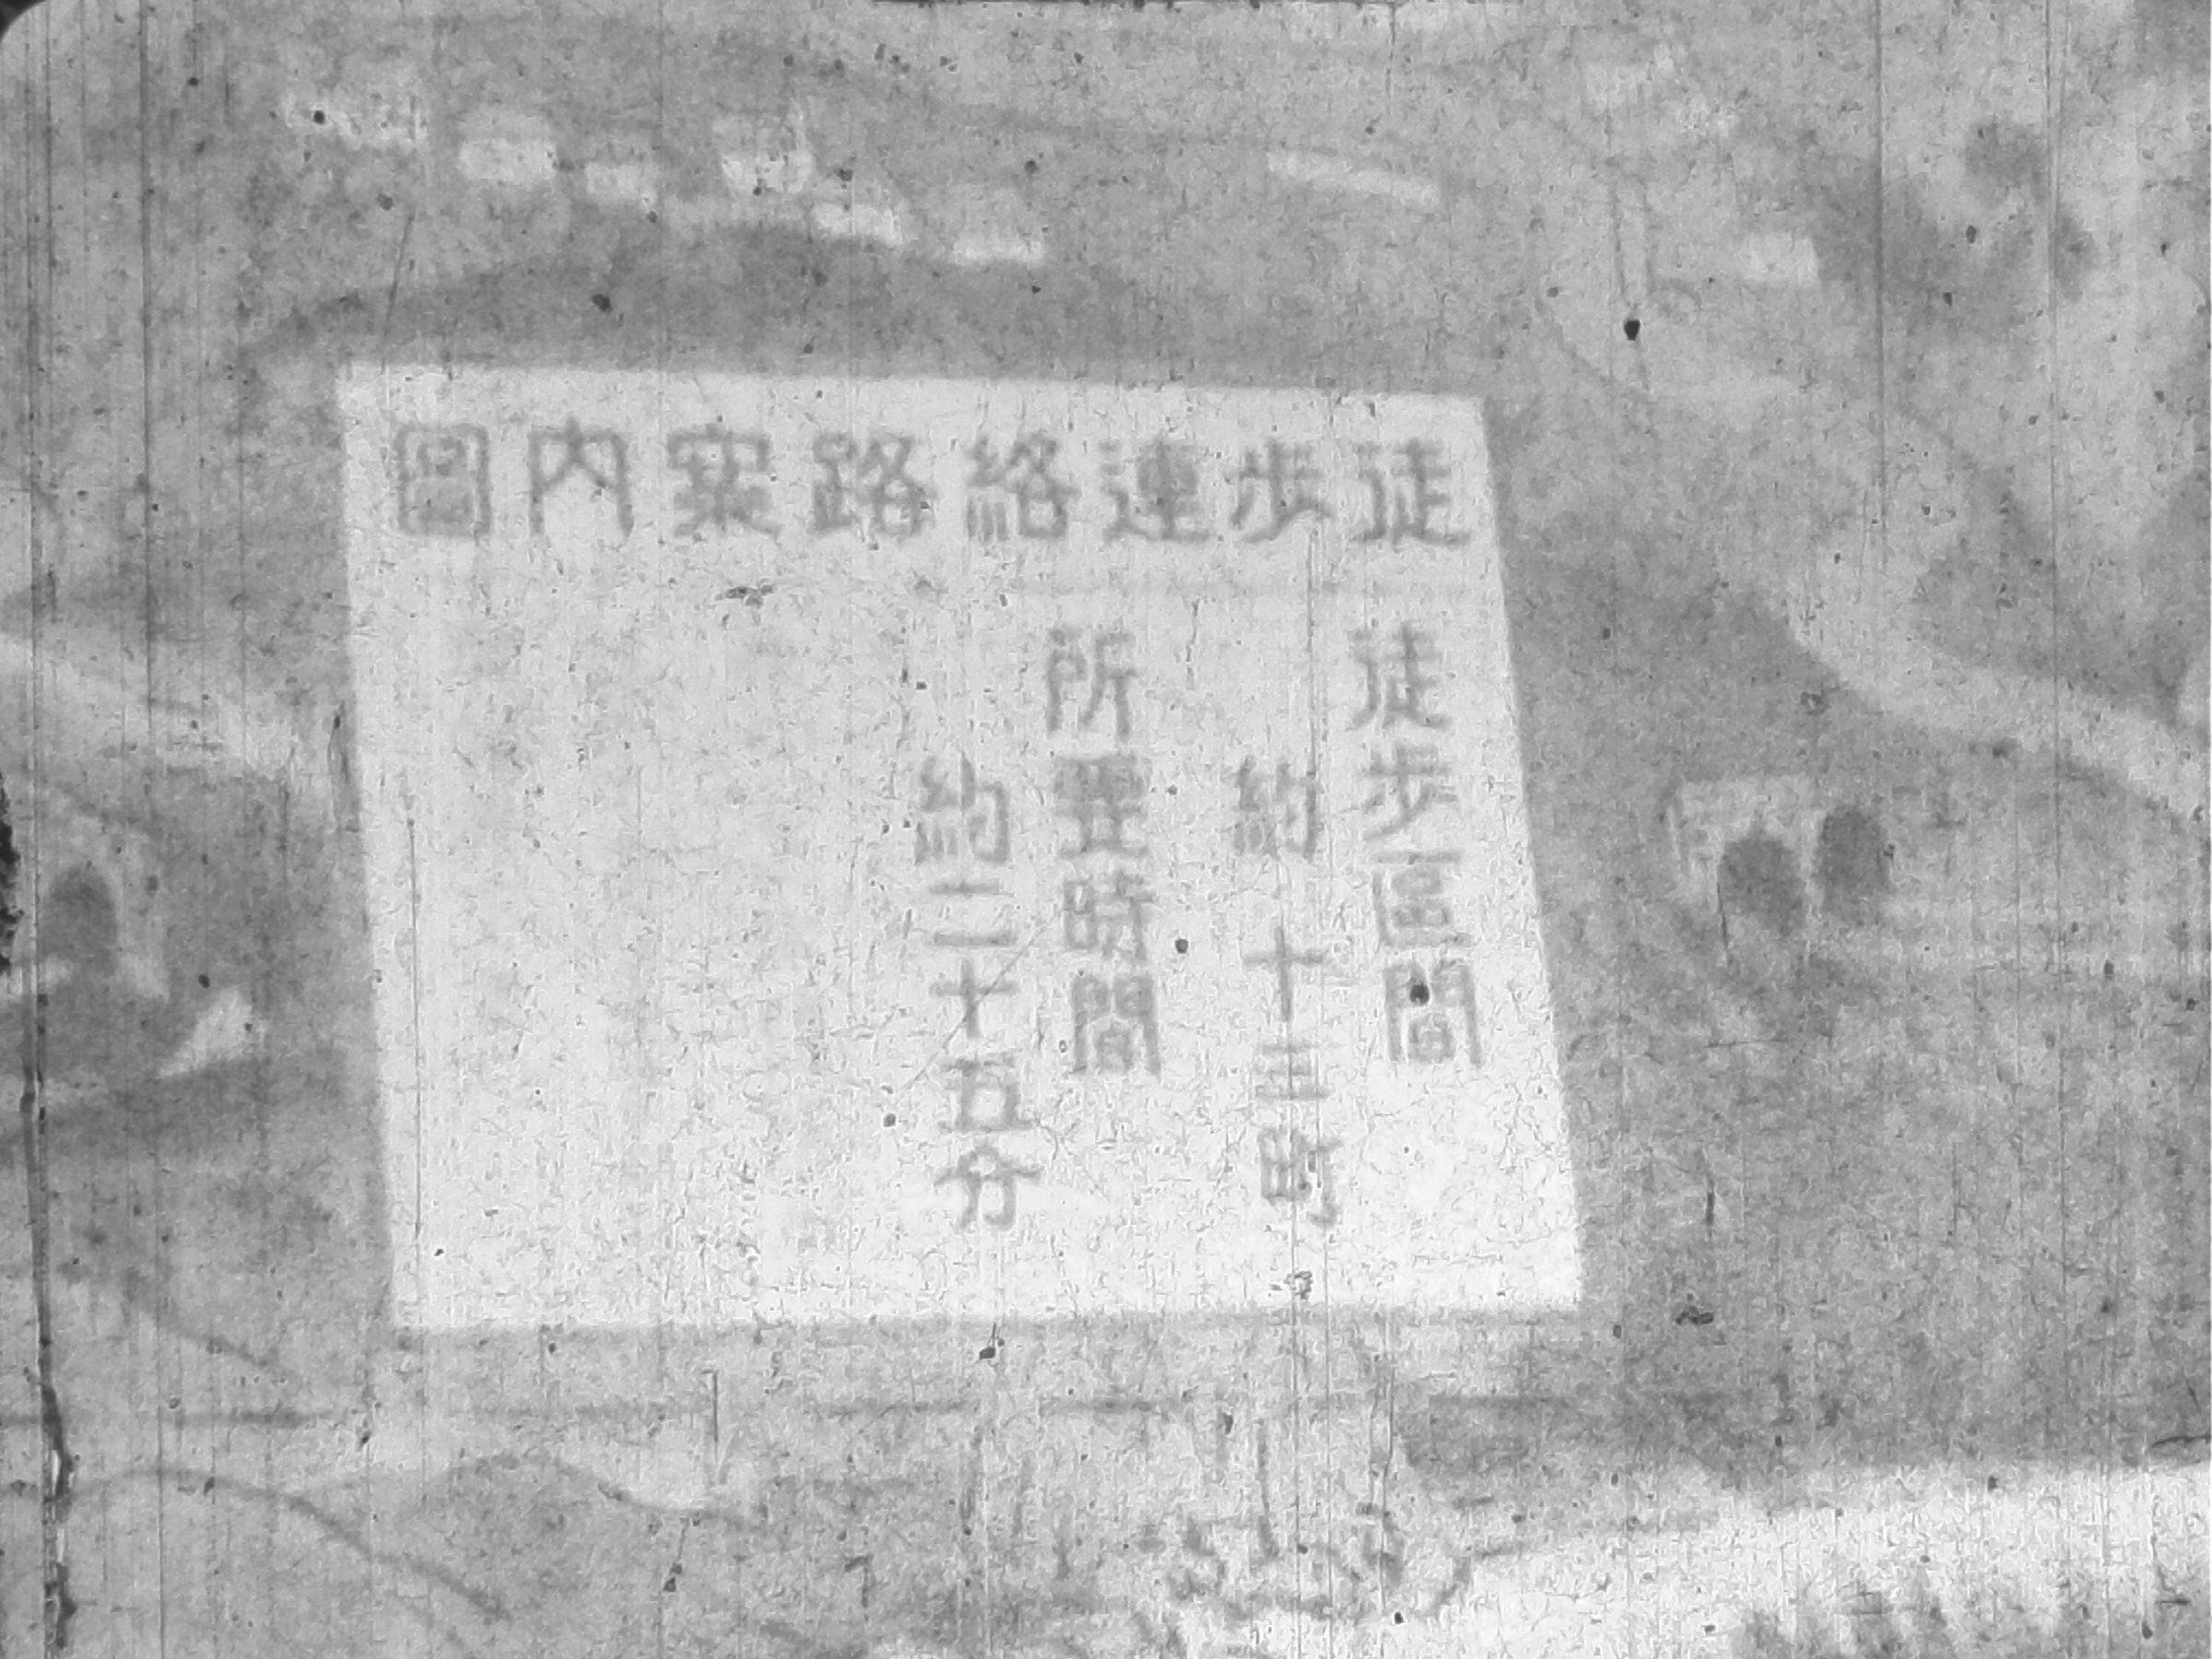 徒歩連絡路案内圖
徒歩區間
約十三町
所要時間
約二十五分